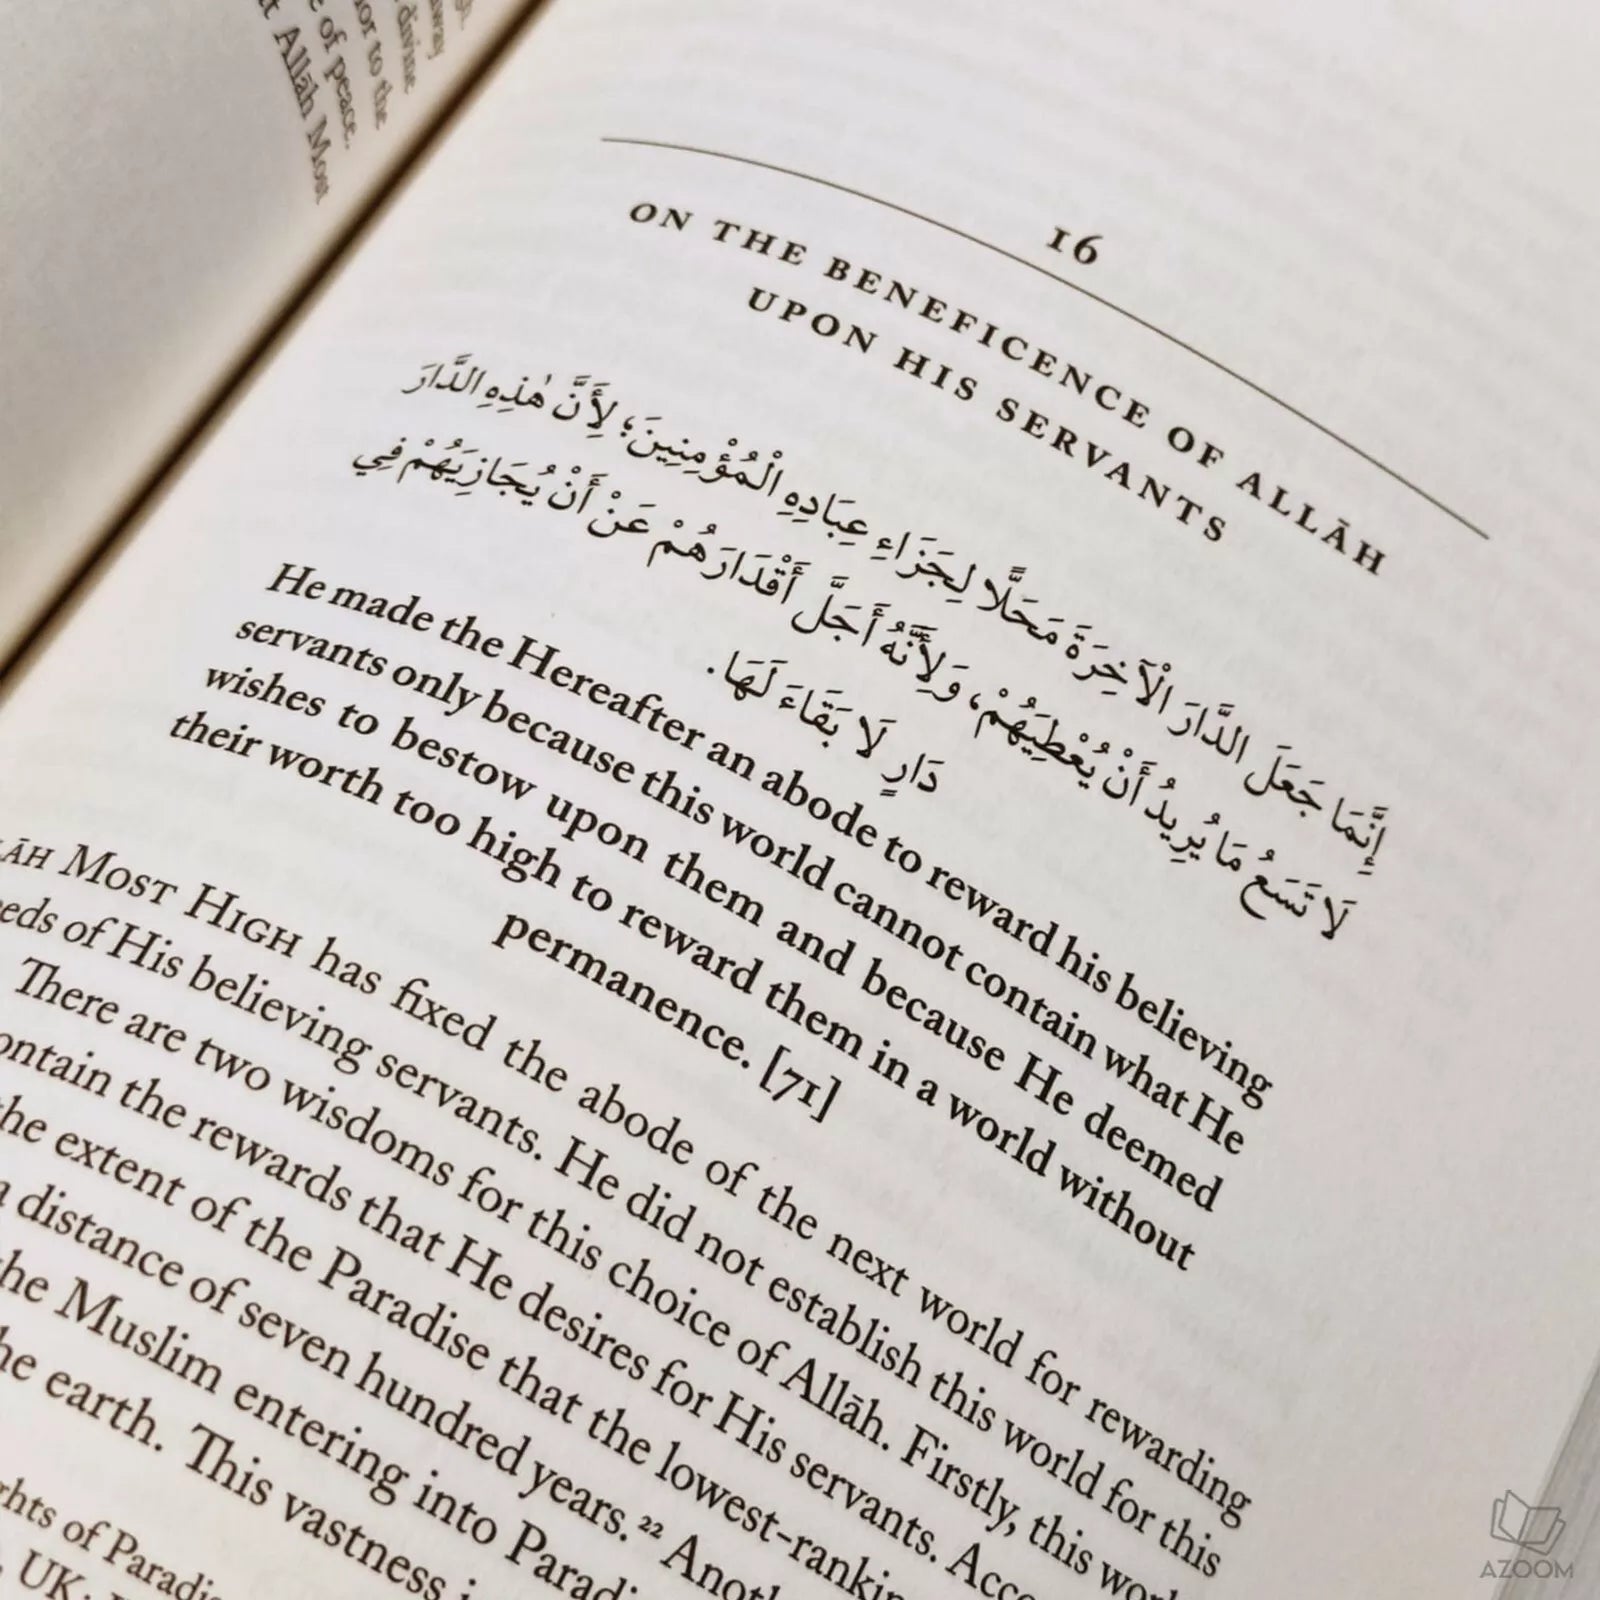 away
divine
nor to the
of peace,
Allāh Most
16
ON THE BENEFICENCE OF ALLĀH
UPON HIS SERVANTS
إِنَّمَا جَعَلَ الدَّارَ الْآخِرَةَ مَحَلًّا لِجَزَاءِ عِبَادِهِ الْمُؤْمِنِينَ؛ لِأَنَّ هٰذِهِ الدَّارَ
لَا تَسَعُ مَا يُرِيدُ أَنْ يُعْطِيَهُمْ، وَلِأَنَّهُ أَجَلَّ أَقْدَارَهُمْ عَنْ أَنْ يُجَازِيَهُمْ فِي
دَارٍ لَا بَقَاءَ لَهَا.
He made the Hereafter an abode to reward his believing
servants only because this world cannot contain what He
wishes to bestow upon them and because He deemed
their worth too high to reward them in a world without
permanence. [71]
MOST HIGH has fixed the abode of the next world for rewarding
of His believing servants. He did not establish this world for this
There are two wisdoms for this choice of Allāh. Firstly, this
the rewards that He desires for His servants.
the extent of the Paradise that the lowest-
distance of seven hundred years.²²
the Muslim entering into
earth. This vastness
of
UK:
AZOOM